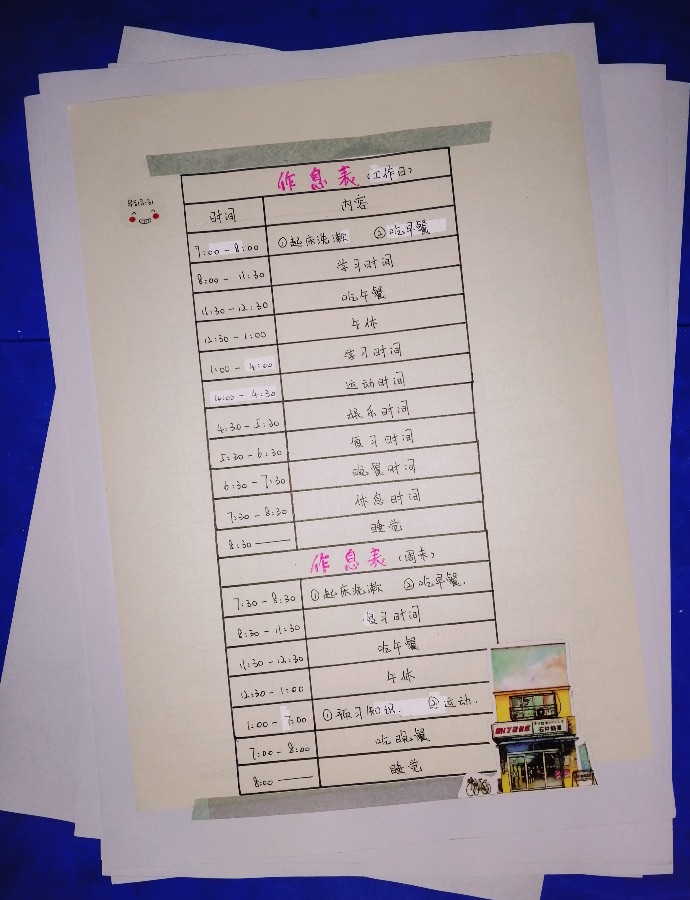 作息表（工作日）
时间 内容
7:00-8:00 ①起床洗漱 ②吃早餐
8:00-11:30 学习时间
11:30-12:30 吃午餐
12:30-1:00 午休
1:00-4:00 学习时间
4:00-4:30 运动时间
4:30-5:30 娱乐时间
5:30-6:30 复习时间
6:30-7:30 晚餐时间
7:30-8:30 休息时间
8:30—— 睡觉
作息表（周末）
7:30-8:30 ①起床洗漱 ②吃早餐.
8:30-11:30 复习时间
11:30-12:30 吃午餐
12:30-1:00 午休
1:00-7:00 ①预习知识. ②运动.
7:00-8:00 吃晚餐
8:00—— 睡觉